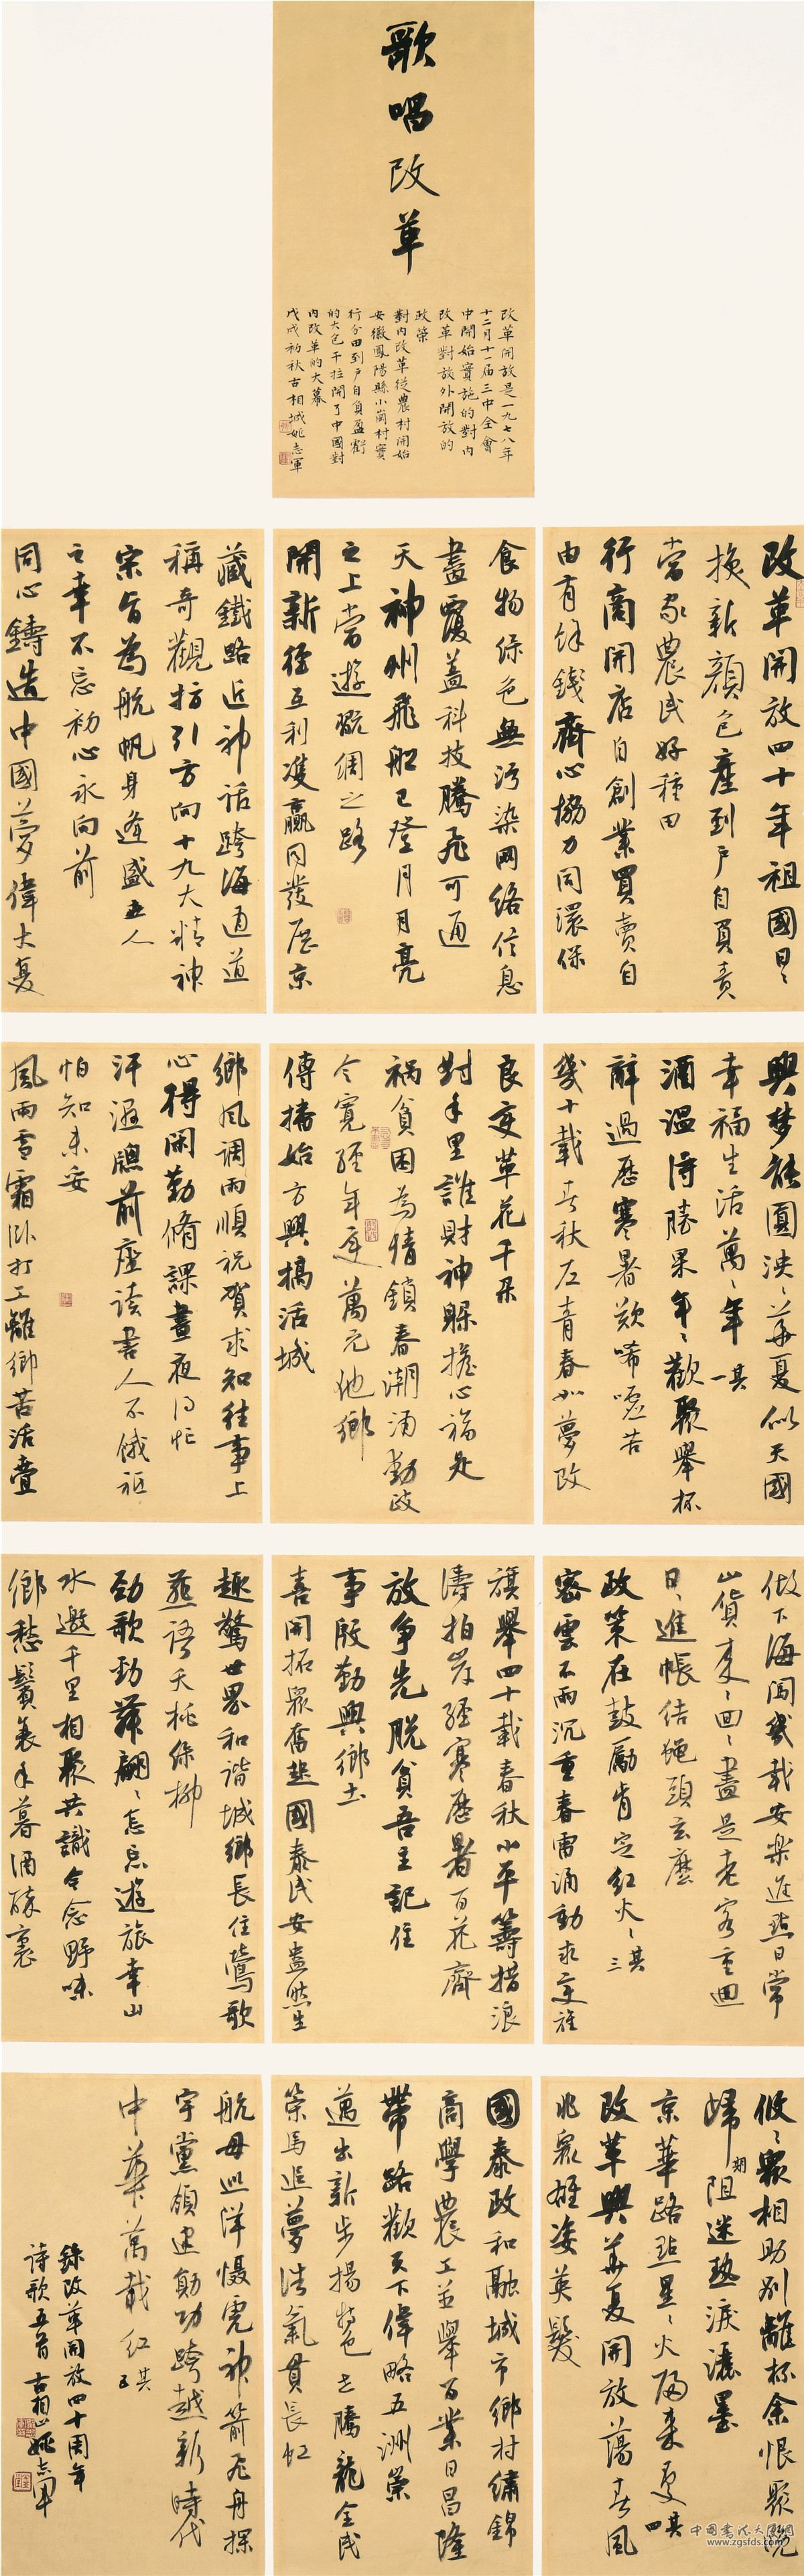 歌唱改革
改革開放是一九七八年
十二月十一届三中全會
中開始實施的對内
改革對放外開放的
政策
對内改革從農村開始
安徽鳳陽縣小崗村實
行分田到户自負盈虧
的大包干拉開了中國對
内改革的大幕
戊戌初秋古相城姚志軍
改革開放四十年祖國日〻
换新顔包産到户自負責
當家農民好種田
行商開店自創業買賣自
由有餘錢齊心協力同環保
食物緑色無污染网络信息
盡覆蓋科技騰飛可通
天神州飛船已登月月亮
之上當遊覧綢之路
開新徑互利雙贏同發展京
藏鐵路近神話跨海通道
稱奇觀指引方向十九大精神
宗旨為航帆身逢盛世人
之幸不忘初心永向前
同心鑄造中國夢偉大复
興梦能圓泱〻華夏似天國
幸福生活萬〻年 其一
酒温詩勝果年〻歡聚舉杯
辭過歷寒暑歎唏嘘苦
幾十載春秋左青春如夢改
良变革花千朵
對手里誰財神躲擔心端是
禍貧困為情鎖春潮涌動政
令寬經年逐萬元他鄉
傳播始方興搞活城
鄉風调雨順祝賀求知往事上
心得閑勤脩課晝夜得忙
汗濕牕前座读書人不餓秪
怕知未妥
風雨雪霜卧打工離鄉苦活壹
做下海闯幾载安樂進點日常
山貨来〻回〻盡是老客重回
日〻進帳结蝇頭玄麽
政策在鼓勵肯定红火〻 其三
密雲不雨沉重春雷涌動求变旌
旗舉四十載春秋小平籌措浪
濤拍岸經寒歷暑百花齊
放争先脱貧吾主記住
事殷勤興鄉土
喜開拓眾奮起國泰民安盎然生
趣驚世界和諧城鄉長住鶯歌
燕語夭桃緑柳
勁歌勁舞翩〻怎忘遊旅幸山
水邀千里相聚共識合念野味
鄉愁鬢衰手暮酒醉裏
攸〻眾相助别離杯余恨聚晚
歸期阻迷熱淚灑墨
京華路點星〻火歸来夏 其四
改革興華夏開放蕩春風
兆衆雄姿英髮
國泰政和融城市鄉村繡錦
商學農工並舉百業日昌隆
帶路歡天下偉略五洲榮
邁出新步揚特色去騰龍全民
策馬追夢浩氣貫長虹
航母巡洋慑虎神箭飛舟探
宇黨領建勛功跨越新時代
中華萬載红 其五
錄改革開放四十周年
詩歌五首 古相山姚志軍
中國書法大展网
www.zgsfds.com